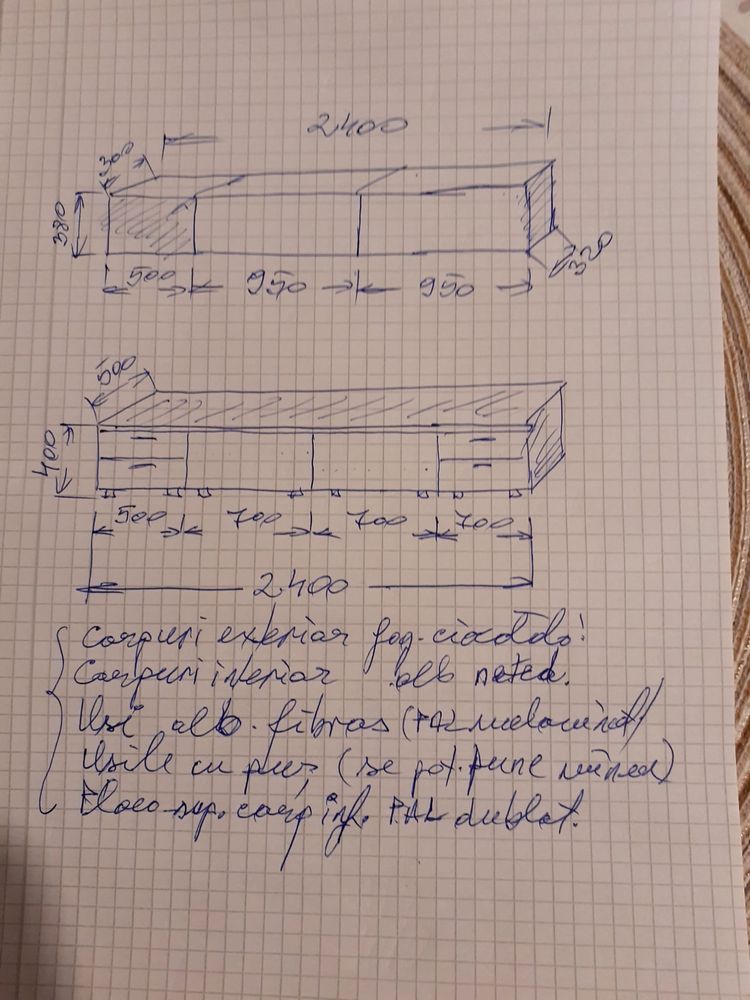 2400
300
380
320
500 950 950
500
400
500 700 700 700
2400
Corpuri exterior fag-ciocolo!
Corpuri interior alb neted.
Usi alb. fibros (PAL melaminat)
Usile cu puș (se pot pune mîner)
Placa sup. corp inf. PAL dublat.